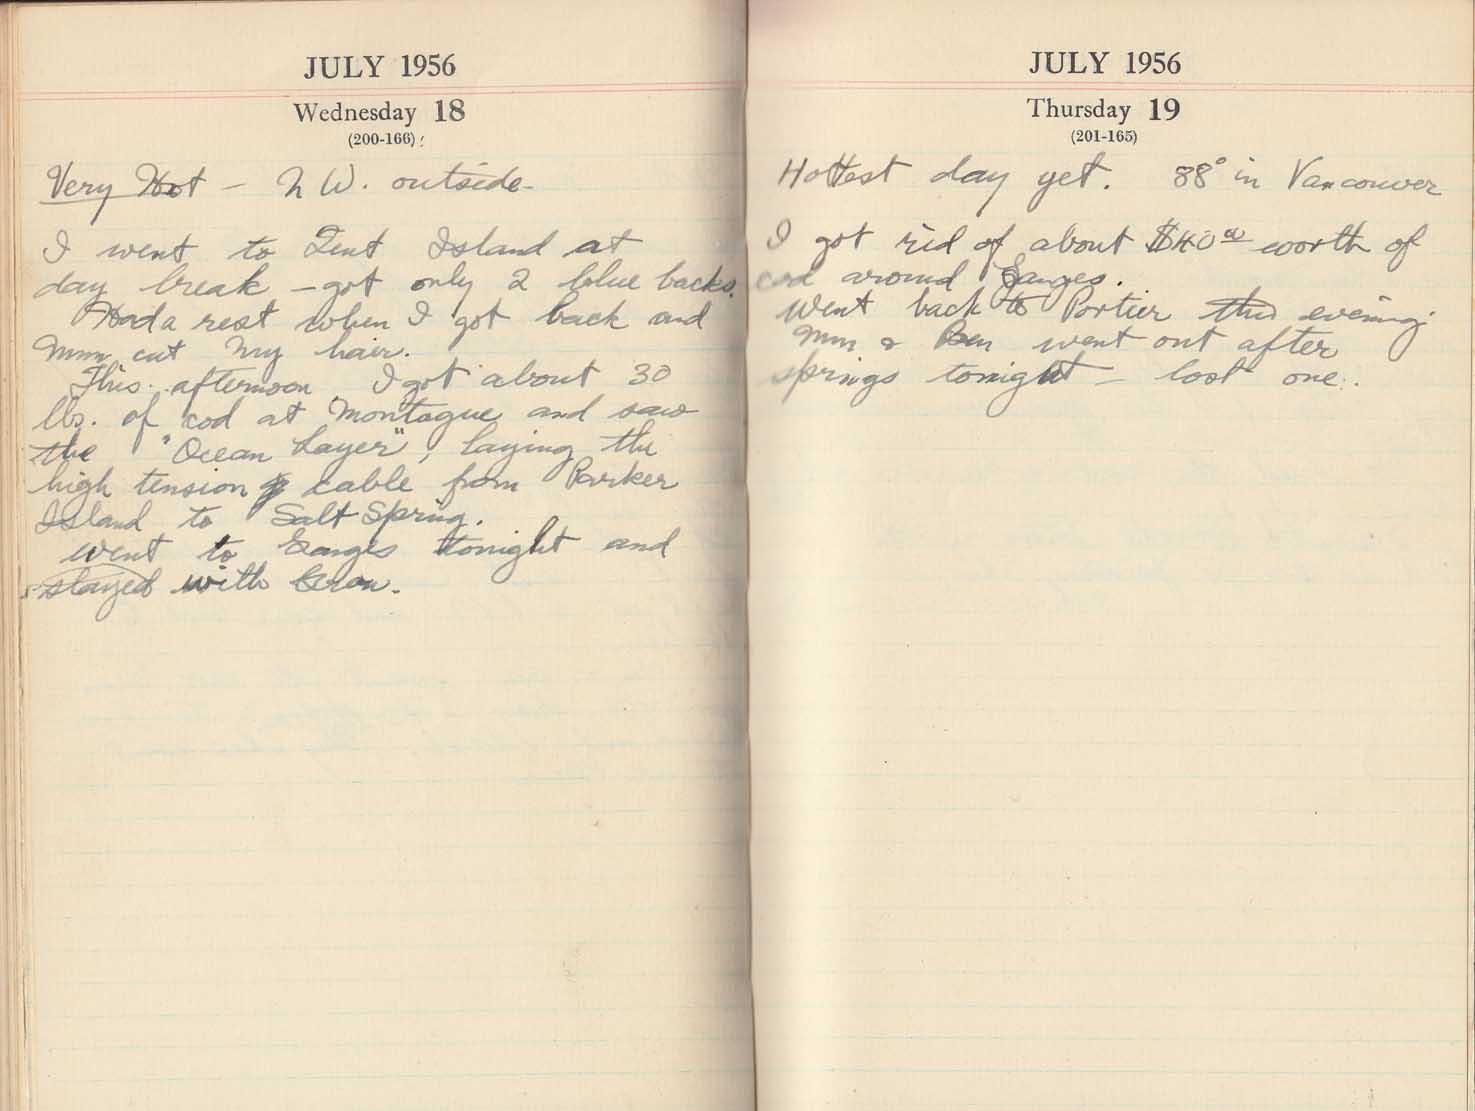 JULY 1956
Wednesday 18
(200-166)
Very Hot – N W. outside-
I went to Tent Island at
day break – got only 2 blue backs.
Had a rest when I got back and
Mum cut my hair.
This afternoon I got about 30
lbs. of cod at Montague and saw
the "Ocean Layer", laying the
high tension cable from Parker
Island to Salt Spring.
Went to Ganges tonight and
stayed with Geron.
JULY 1956
Thursday 19
(201-165)
Hottest day yet. 88° in Vancouver
I got rid of about $40 00 worth of
cod around Ganges.
Went back to Portier this evening.
Mum & Ben went out after
springs tonight – lost one.